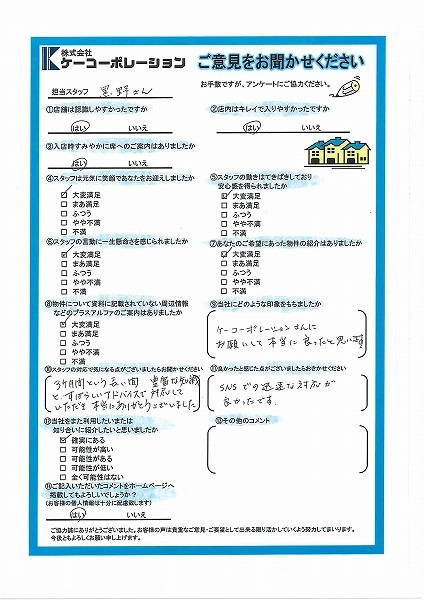 株式会社
ケーコーポレーション
ご意見をお聞かせください
お手数ですが、アンケートにご協力ください。
担当スタッフ 黒野さん
①店舗は認識しやすかったですか
はい いいえ
②店内はキレイで入りやすかったですか
はい いいえ
③入店時すみやかに席へのご案内はありましたか
はい いいえ
④スタッフは元気に笑顔であなたをお迎えしましたか
大変満足
まあ満足
ふつう
やや不満
不満
⑤スタッフの動きはてきぱきしており
安心感を得られましたか
大変満足
まあ満足
ふつう
やや不満
不満
⑥スタッフの言動に一生懸命さを感じられましたか
大変満足
まあ満足
ふつう
やや不満
不満
⑦あなたのご希望にあった物件の紹介はありましたか
大変満足
まあ満足
ふつう
やや不満
不満
⑧物件について資料に記載されていない周辺情報
などのプラスアルファのご案内はありましたか
大変満足
まあ満足
ふつう
やや不満
不満
⑨当社にどのような印象をもちましたか
ケーコーポレーションさんに
お願いして本当に良かったと思います
⑩スタッフの対応で気になる点がございましたらお聞かせください
3ヶ月間という長い間 豊富な知識
と、すばらしいアドバイスで対応して
いただき本当にありがとうございました
⑪良かったと感じた点がございましたらおきかせください
SNSでの迅速な対応が
良かったです。
⑫当社をまた利用したいまたは
知り合いに紹介したいと思いましたか
確実にある
可能性が高い
可能性がある
可能性が低い
全く可能性はない
⑬その他のコメント
⑭ご記入いただいたコメントをホームページへ
掲載してもよろしいでしょうか？
（お客様の個人情報は十分に配慮致します）
はい いいえ
ご協力誠にありがとうございました。お客様の声は貴重なご意見・ご要望として出来る限り活かしていくよう努力してまいります。
今後ともよろしくお願い申し上げます。